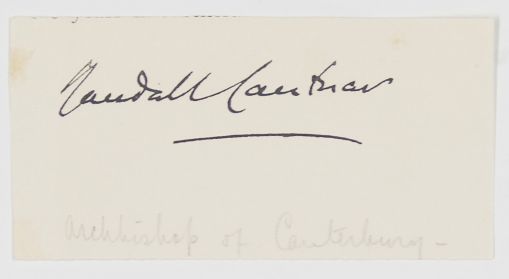 Randall Cantuar
Archbishop of Canterbury -